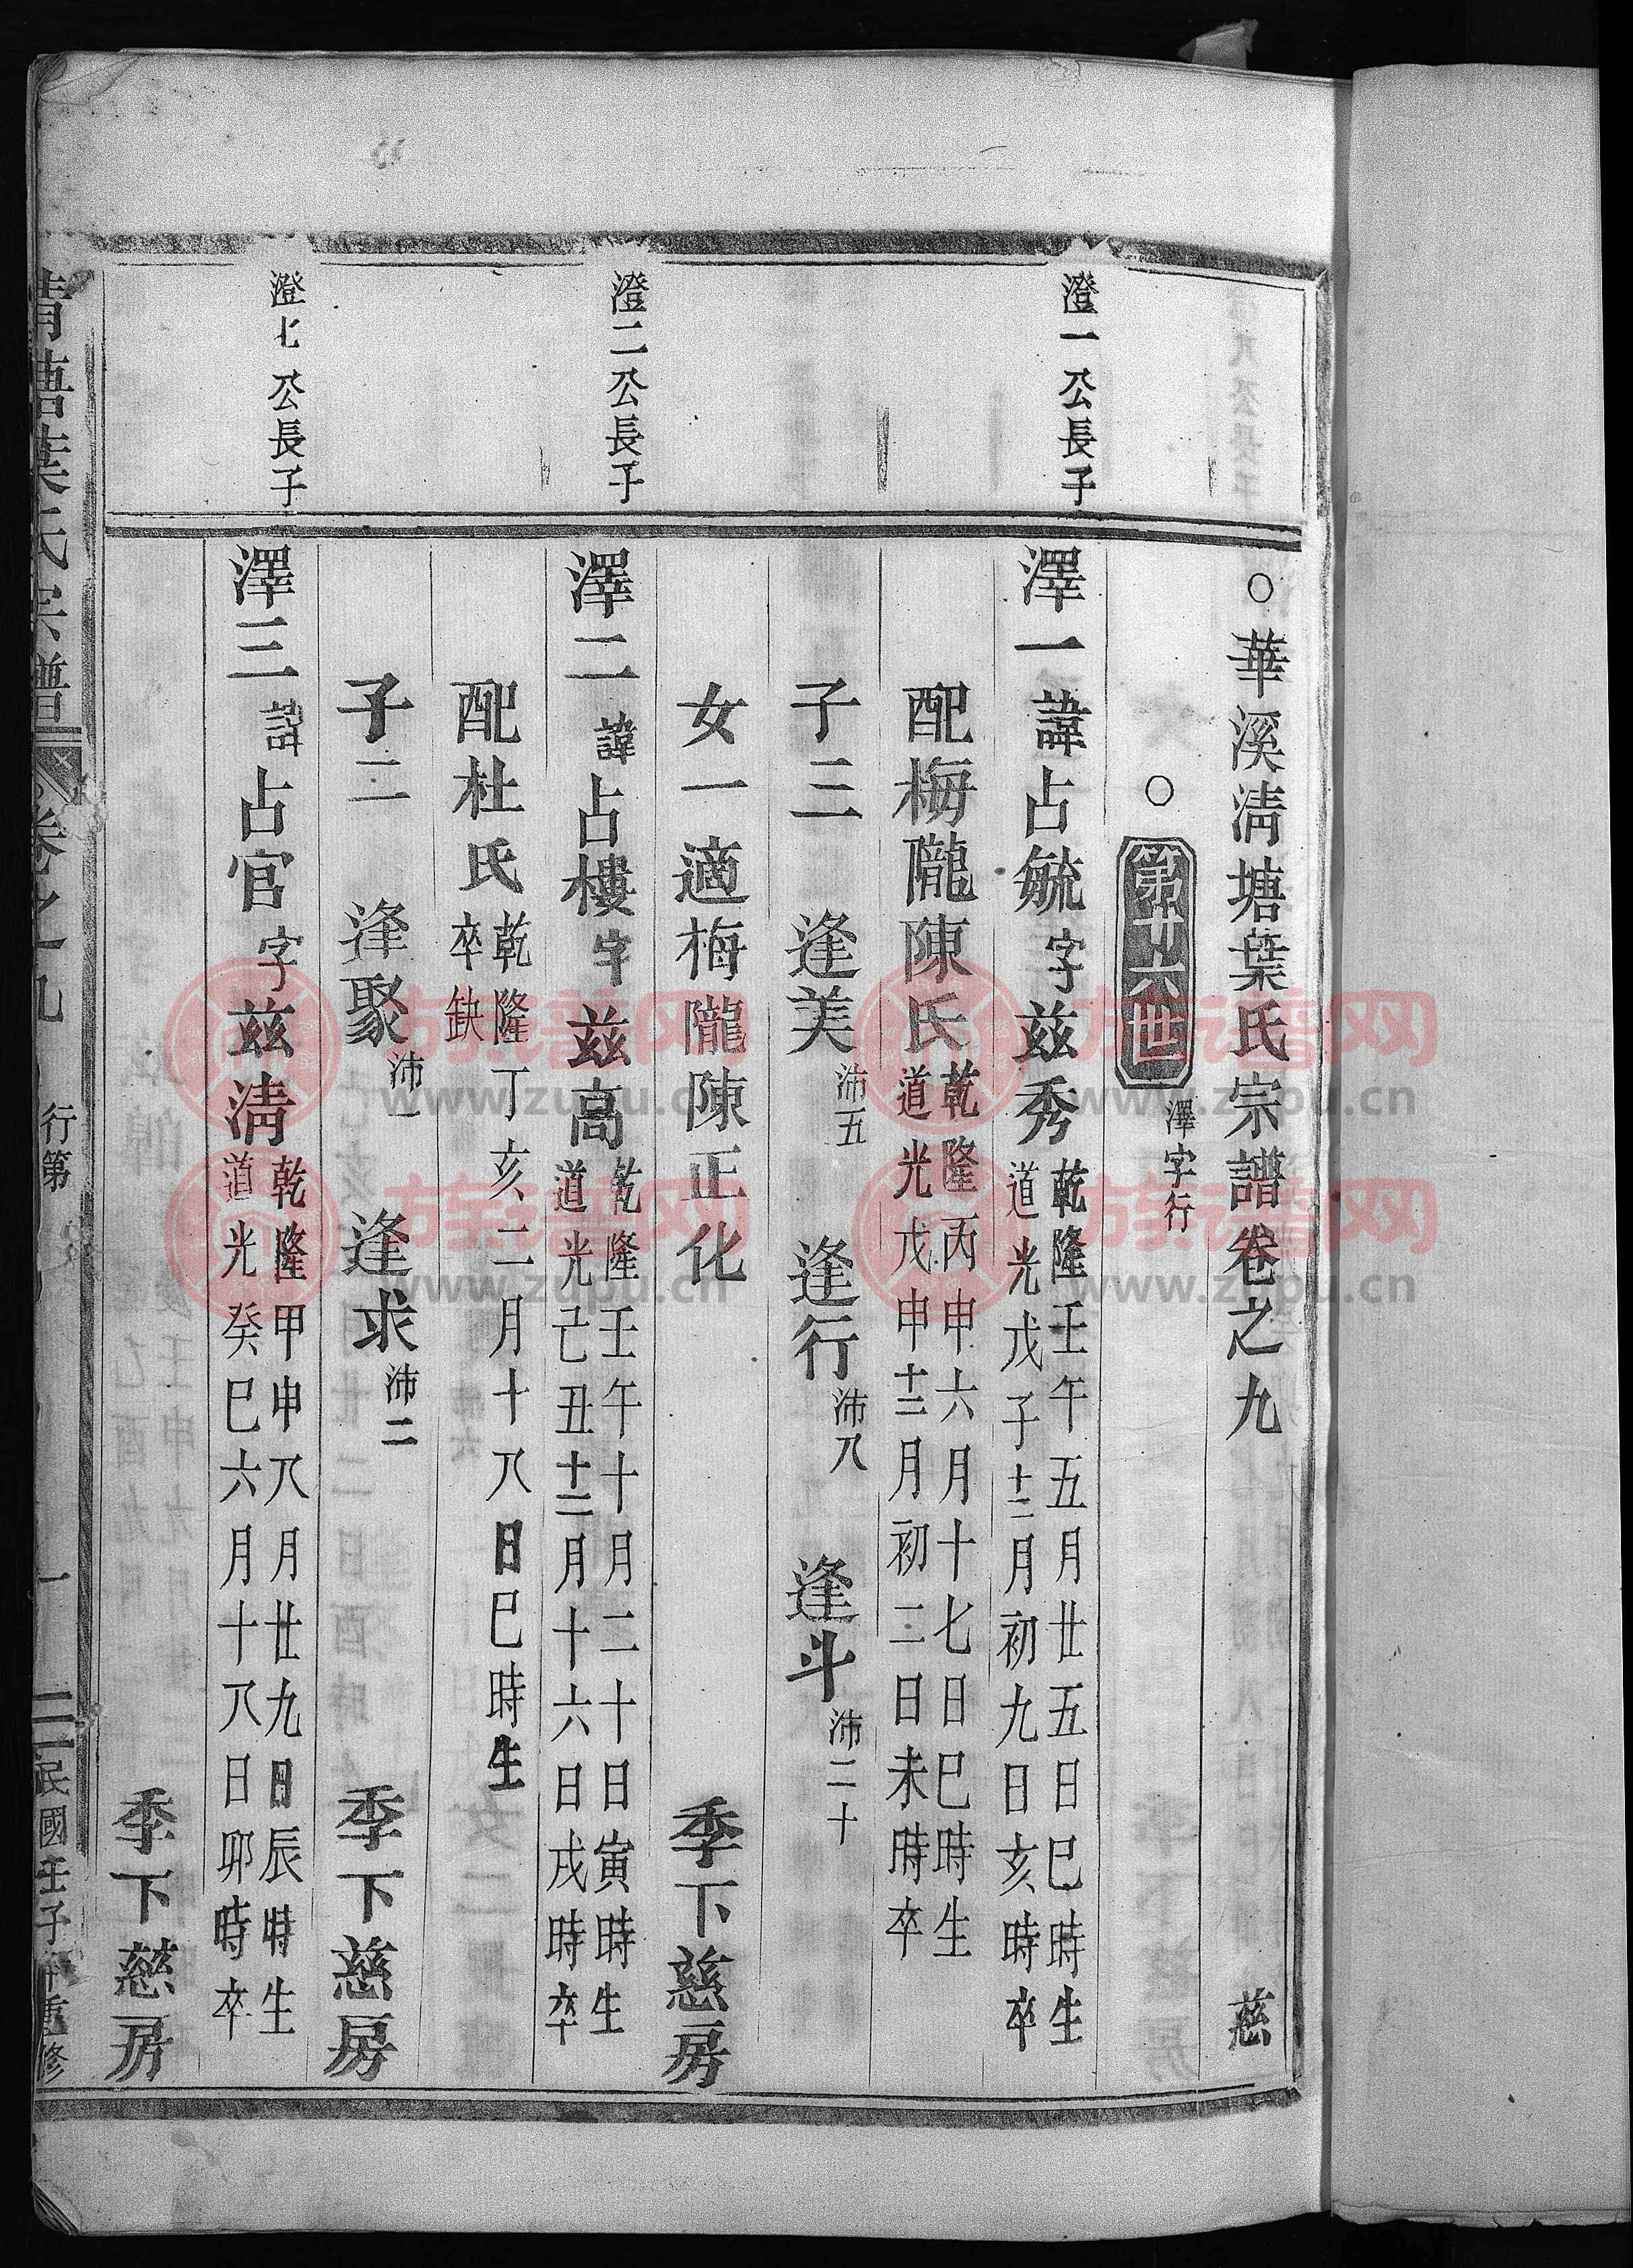 ○華溪淸塘葉氏宗譜卷之九　慈
○第十六世　澤字行
澄一公長子
澤一諱占毓字茲秀乾隆壬午五月廿五日巳時生
道光戊子十二月初九日亥時卒
配梅隴陳氏乾隆丙申六月十七日巳時生
道光戊申十二月初二日未時卒
子三　逢美沛五　逢行沛八　逢斗沛二十
女一適梅隴陳正化　季下慈房
澄二公長子
澤二諱占樓字茲高乾隆壬午十月二十日寅時生
道光己丑十二月十六日戌時卒
配杜氏乾隆丁亥二月十八日巳時生
卒缺
子二　逢聚沛一　逢求沛二　季下慈房
澄七公長子
澤三諱占官字茲淸乾隆甲申八月廿九日辰時生
道光癸巳六月十八日卯時卒
季下慈房
清塘葉氏宗譜　卷之九　行第　一　民國壬子年重修
族譜网
www.zupu.cn
族譜网
www.zupu.cn
族譜网
www.zupu.cn
族譜网
www.zupu.cn